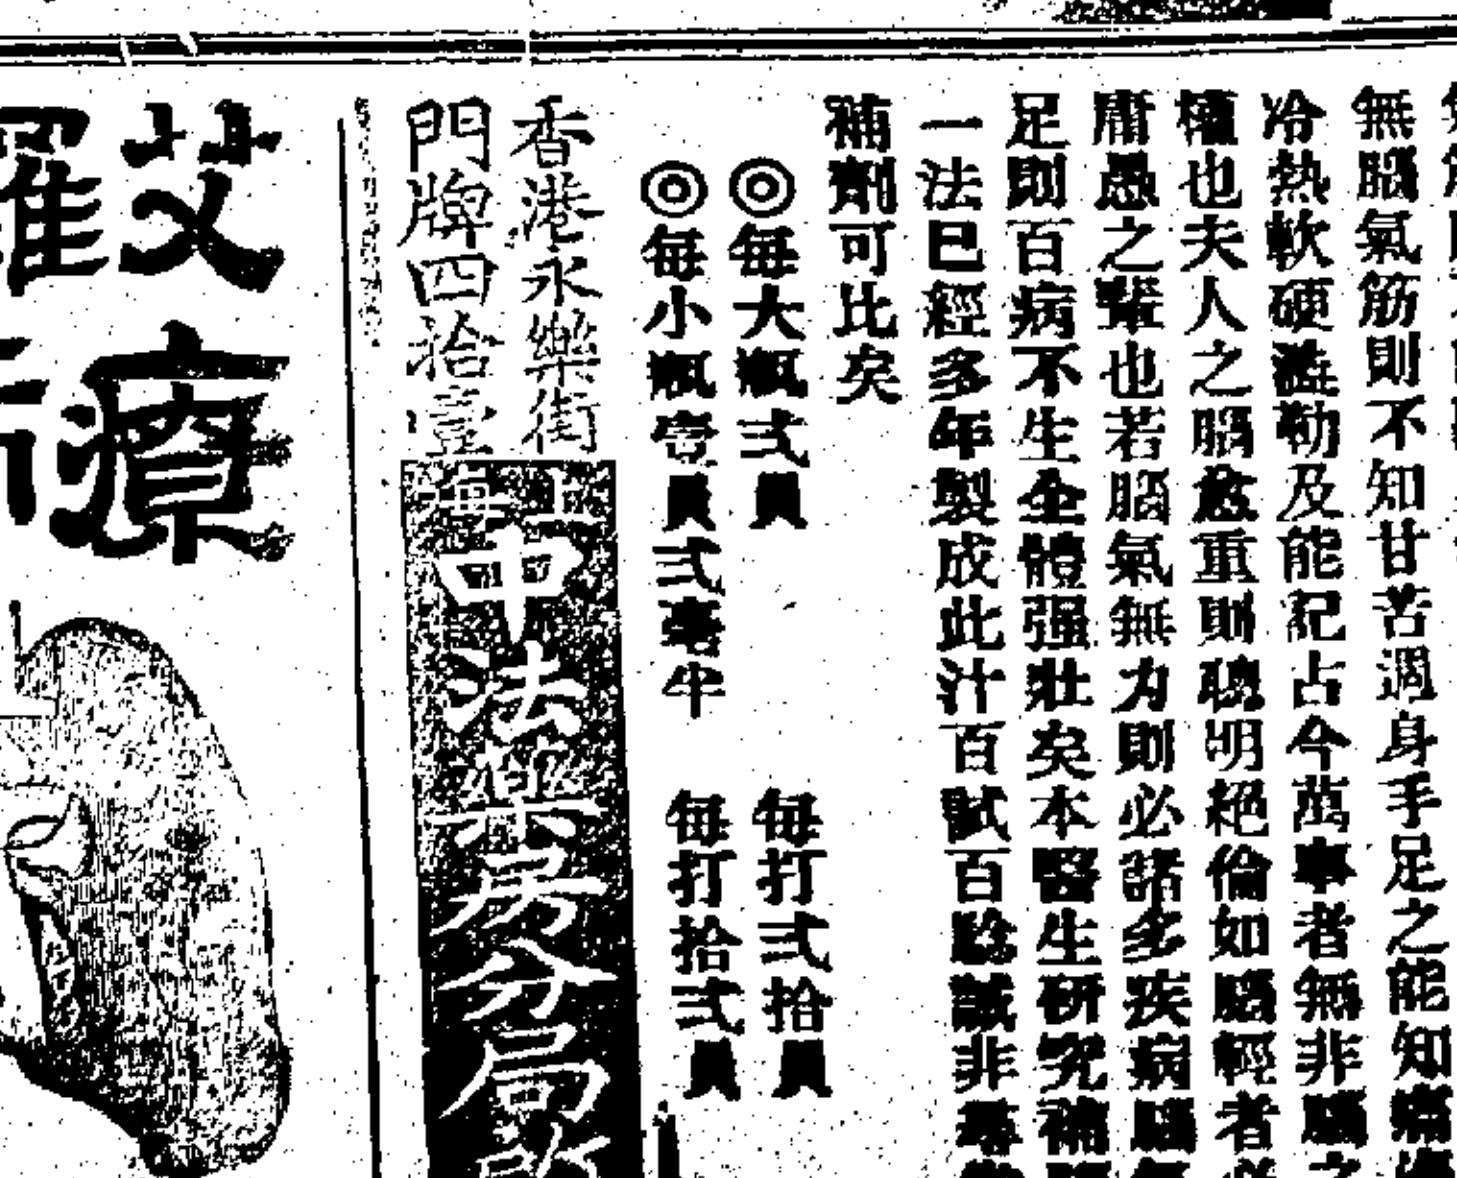 無腦氣筋則不知甘苦週身手足之能知痛
冷熱軟硬澁勒及能記占今萬事者無非腦之
權也夫人之腦愈重則聰明絕倫如腦輕者必
庸愚之輩也若腦氣無力則必諸多疾病腦
足則百病不生全體强壯矣本醫生研究補
一法已經多年製成此汁百試百騐誠非尋
補劑可比矣
◎每大瓶弍員 每打弍拾員
◎每小瓶壹員弍毫半 每打拾弍員
香港永樂街
門牌四拾壹
上海
中法藥房分局
艾
療
羅